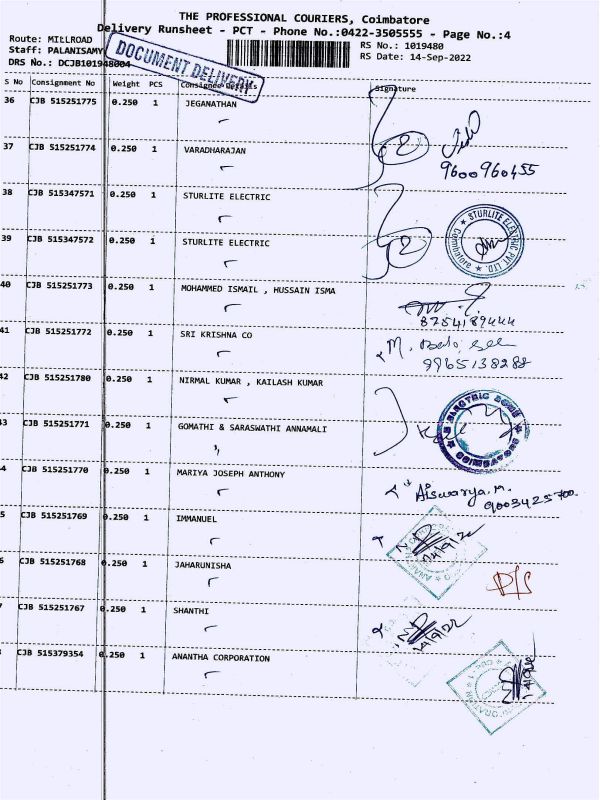 THE PROFESSIONAL COURIERS, Coimbatore
Delivery Runsheet - PCT - Phone No.:0422-3505555 - Page No.:4
Route: MILLROAD
RS No.: 1019480
Staff: PALANISAMY
RS Date: 14-Sep-2022
DRS No.: DCJB101948004
DOCUMENT DELIVERY
S No Consignment No Weight PCS Consignee Details Signature
36 CJB 515251775 0.250 1 JEGANATHAN
37 CJB 515251774 0.250 1 VARADHARAJAN
9600960455
38 CJB 515347571 0.250 1 STURLITE ELECTRIC
★ STURLITE ELECTRIC PVT LTD. ★ Coimbatore
39 CJB 515347572 0.250 1 STURLITE ELECTRIC
40 CJB 515251773 0.250 1 MOHAMMED ISMAIL , HUSSAIN ISMA
8754189444
41 CJB 515251772 0.250 1 SRI KRISHNA CO
9965138288
42 CJB 515251780 0.250 1 NIRMAL KUMAR , KAILASH KUMAR
ELECTRIC ZONE
★ COIMBATORE ★
43 CJB 515251771 0.250 1 GOMATHI & SARASWATHI ANNAMALI
4 CJB 515251770 0.250 1 MARIYA JOSEPH ANTHONY
Aiswarya.M.
9003425700
5 CJB 515251769 0.250 1 IMMANUEL
14/9/22
6 CJB 515251768 0.250 1 JAHARUNISHA
P/S
7 CJB 515251767 0.250 1 SHANTHI
14/9/22
CJB 515379354 0.250 1 ANANTHA CORPORATION